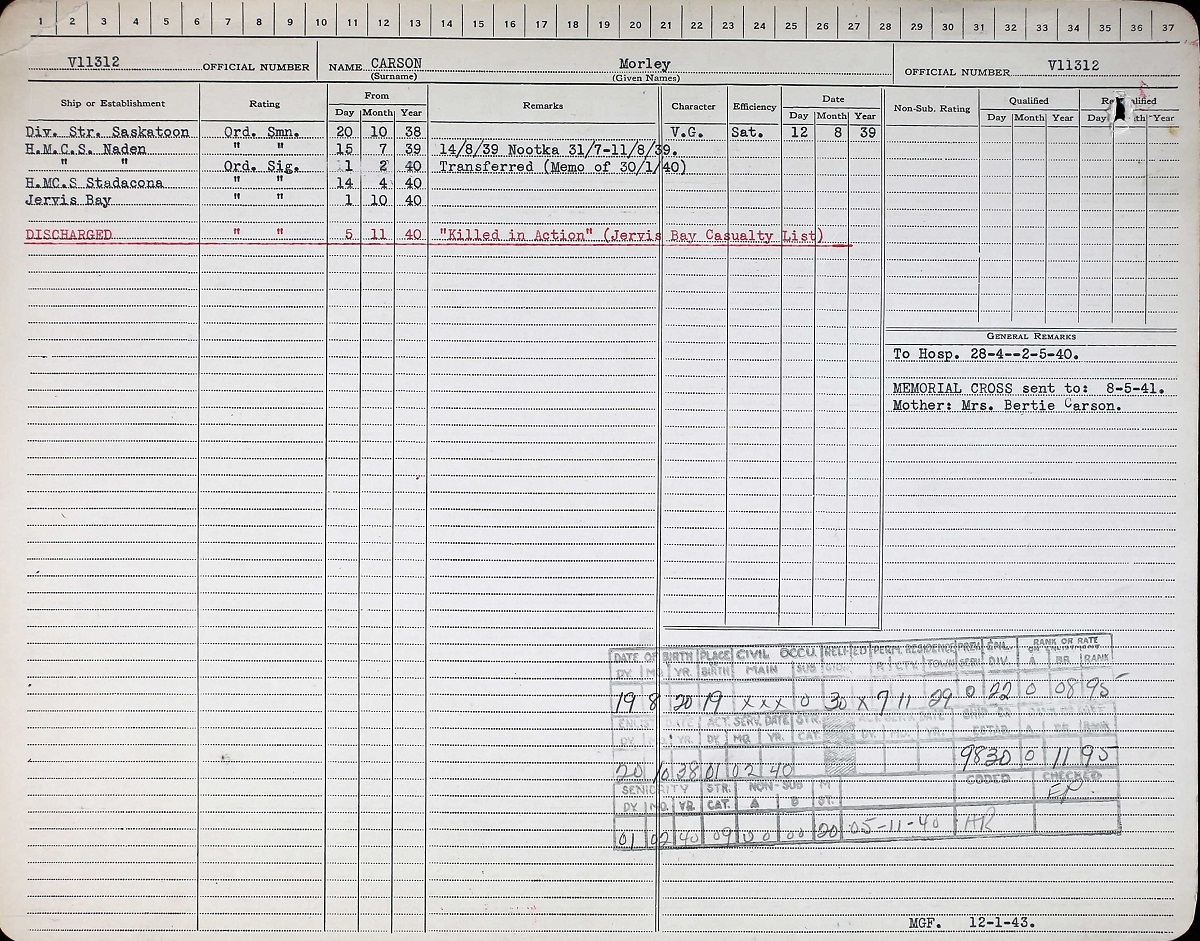 1 2 3 4 5 6 7 8 9 10 11 12 13 14 15 16 17 18 19 20 21 22 23 24 25 26 27 28 29 30 31 32 33 34 35 36 37
V11312 OFFICIAL NUMBER NAME CARSON Morley OFFICIAL NUMBER V11312
(Surname) (Given Names)
Ship or Establishment Rating From Remarks Character Efficiency Date Non-Sub. Rating Qualified
Day Month Year Day Month Year Day Month Year Day Year
Div. Str. Saskatoon Ord. Smn. 20 10 38 V.G. Sat. 12 8 39
H.M.C.S. Naden " " 15 7 39 14/8/39 Nootka 31/7-11/8/39.
" " Ord. Sig. 1 2 40 Transferred (Memo of 30/1/40)
H.MC.S Stadacona " " 14 4 40
Jervis Bay " " 1 10 40
DISCHARGED " " 5 11 40 "Killed in Action" (Jervis Bay Casualty List)
GENERAL REMARKS
To Hosp. 28-4--2-5-40.
MEMORIAL CROSS sent to: 8-5-41.
Mother: Mrs. Bertie Carson.
DATE OF BIRTH PLACE BIRTH CIVIL OCCU. PERM. RESIDENCE RANK OR RATE
DY. YR. MAIN SUB TOWN DIV. A BR. RANK
19 8 20 19 X X X 0 30 X 7 11 29 0 22 0 08 95
DATE ACT. SERV. DATE STR.
YR. DY. MO. YR. CAT.
20 10 38 01 02 40 9830 0 11 95
SENIORITY STR. NON-SUB CODED CHECKED
DY. MO. YR. CAT. A B ST. EP.
01 02 40 09 00 00 20 05-11-40 HR
MGF. 12-1-43.